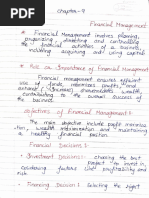 Chapter-9
Financial Management
* Financial Management involves planning,
organizing, directing and controlling
the financial activities of a business,
including acquiring and using capital
* Role and Importance of Financial Management
Financial Management ensures efficient
use of funds, maximizes profits, and
increases shareholder's wealth
contributing to the overall success
of a business
Objectives of Financial Management:
The main objective include profit maximiza
tion, wealth maximization and maintaining
financial stability and liquidity
Financial Decisions:-
- Investment Decisions: choosing the best
considering factors like profitability and
risk
- Financing Decision: Selecting the right